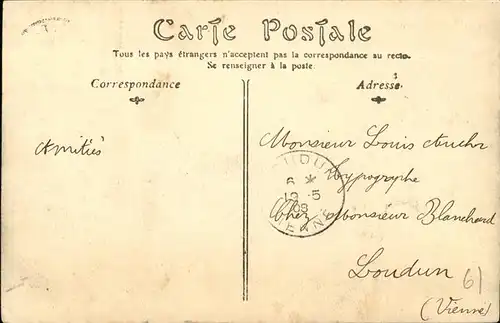 Carte Postale
Tous les pays étrangers n'acceptent pas la correspondance au recto.
Se renseigner à la poste.
Correspondance
Adresse
Amitiés
Monsieur Louis
Typographe
Chez Monsieur Blanchard
Loudun
(Vienne)
LOUDUN
6 *
19 -5
09
VIENNE
61